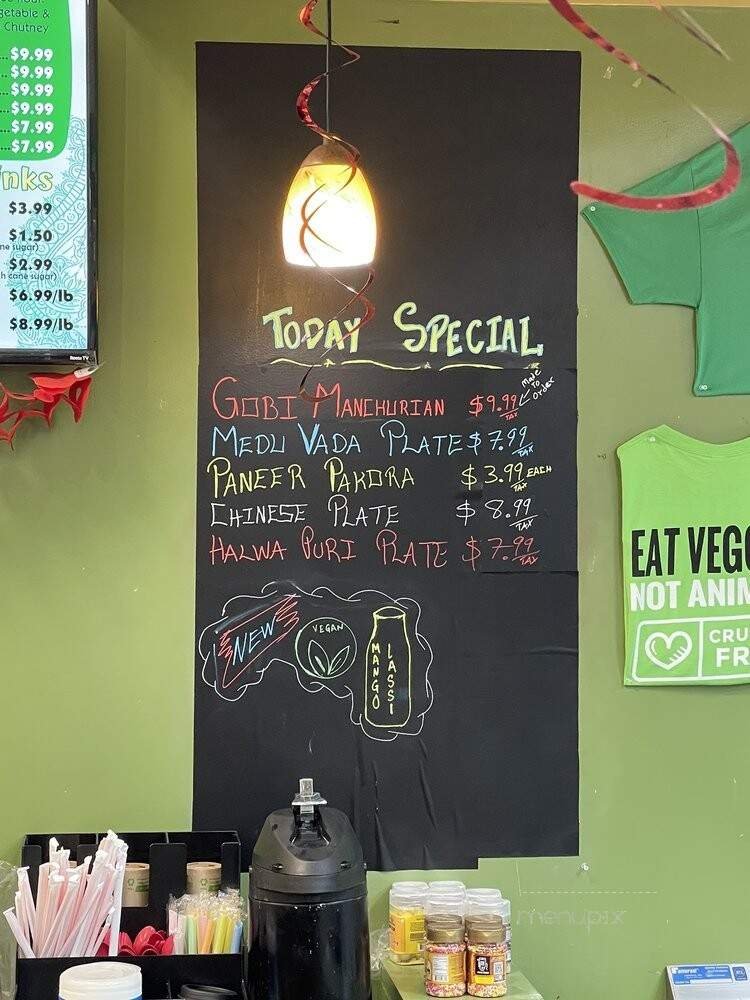 getable &
Chutney
$9.99
$9.99
$9.99
$9.99
$7.99
$7.99
nks
$3.99
$1.50
ne sugar)
$2.99
h cane sugar)
$6.99/lb
$8.99/lb
Roku TV
TODAY SPECIAL
GOBI MANCHURIAN $9.99 TAX MADE TO ORDER
MEDU VADA PLATE $7.99 TAX
PANEER PAKORA $3.99 EACH TAX
CHINESE PLATE $8.99 TAX
HALWA PURI PLATE $7.99 TAX
NEW
VEGAN
MANGO
LASSI
EAT VEGG
NOT ANIM
CRU
FR
menupix